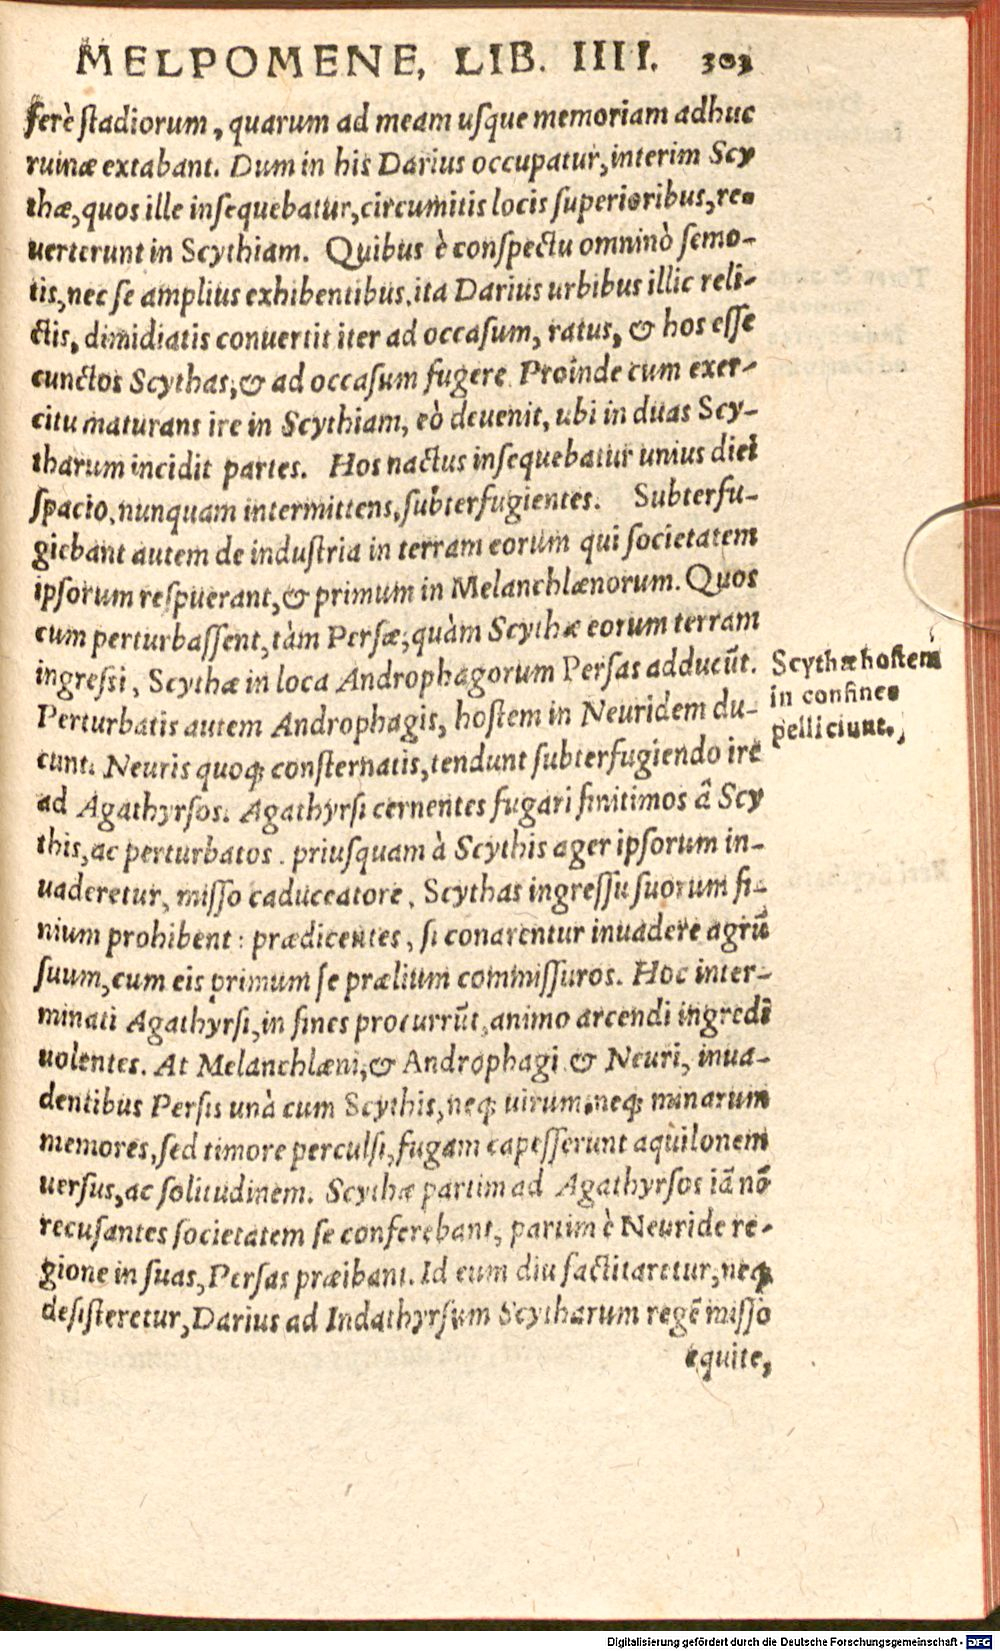 MELPOMENE, LIB. IIII. 303
ferè ſtadiorum, quarum ad meam uſque memoriam adhuc
ruinæ extabant. Dum in his Darius occupatur, interim Scy
thæ, quos ille inſequebatur, circumitis locis ſuperioribus, re-
uerterunt in Scythiam. Quibus è conſpectu omninò ſemo-
tis, nec ſe amplius exhibentibus, ita Darius urbibus illic reli-
ctis, dimidiatis conuertit iter ad occaſum, ratus, & hos eſſe
cunctos Scythas, & ad occaſum fugere. Proinde cum exer-
citu maturans ire in Scythiam, eò deuenit, ubi in duas Scy-
tharum incidit partes. Hos nactus inſequebatur unius diei
ſpacio, nunquam intermittens, ſubterfugientes. Subterfu-
giebant autem de induſtria in terram eorum qui ſocietatem
ipſorum reſpuerant, & primum in Melanchlænorum. Quos
cum perturbaſſent, tàm Perſæ, quàm Scythæ eorum terram
ingreſſi, Scythæ in loca Androphagorum Perſas adducũt.
Perturbatis autem Androphagis, hoſtem in Neuridem du-
cunt. Neuris quoq; conſternatis, tendunt ſubterfugiendo ire
ad Agathyrſos. Agathyrſi cernentes fugari finitimos â Scy
this, ac perturbatos, priuſquam à Scythis ager ipſorum in-
uaderetur, miſſo caduceatore, Scythas ingreſſu ſuorum fi-
nium prohibent: prædicentes, ſi conarentur inuadere agrũ
ſuum, cum eis primum ſe prælium commiſſuros. Hoc inter-
minati Agathyrſi, in fines procurrũt, animo arcendi ingredi
uolentes. At Melanchlæni, & Androphagi & Neuri, inua-
dentibus Perſis unà cum Scythis, neq; uirum, neq; minarum
memores, ſed timore perculſi, fugam capeſſerunt aquilonem
uerſus, ac ſolitudinem. Scythæ partim ad Agathyrſos iã nõ
recuſantes ſocietatem ſe conferebant, partim è Neuride re-
gione in ſuas, Perſas præibant. Id cum diu factitaretur, neq;
deſiſteretur, Darius ad Indathyrſum Scytharum regẽ miſſo
equite,
Scythæ hoſtem
in confines
pelliciunt.
Digitalisierung gefördert durch die Deutsche Forschungsgemeinschaft - DFG